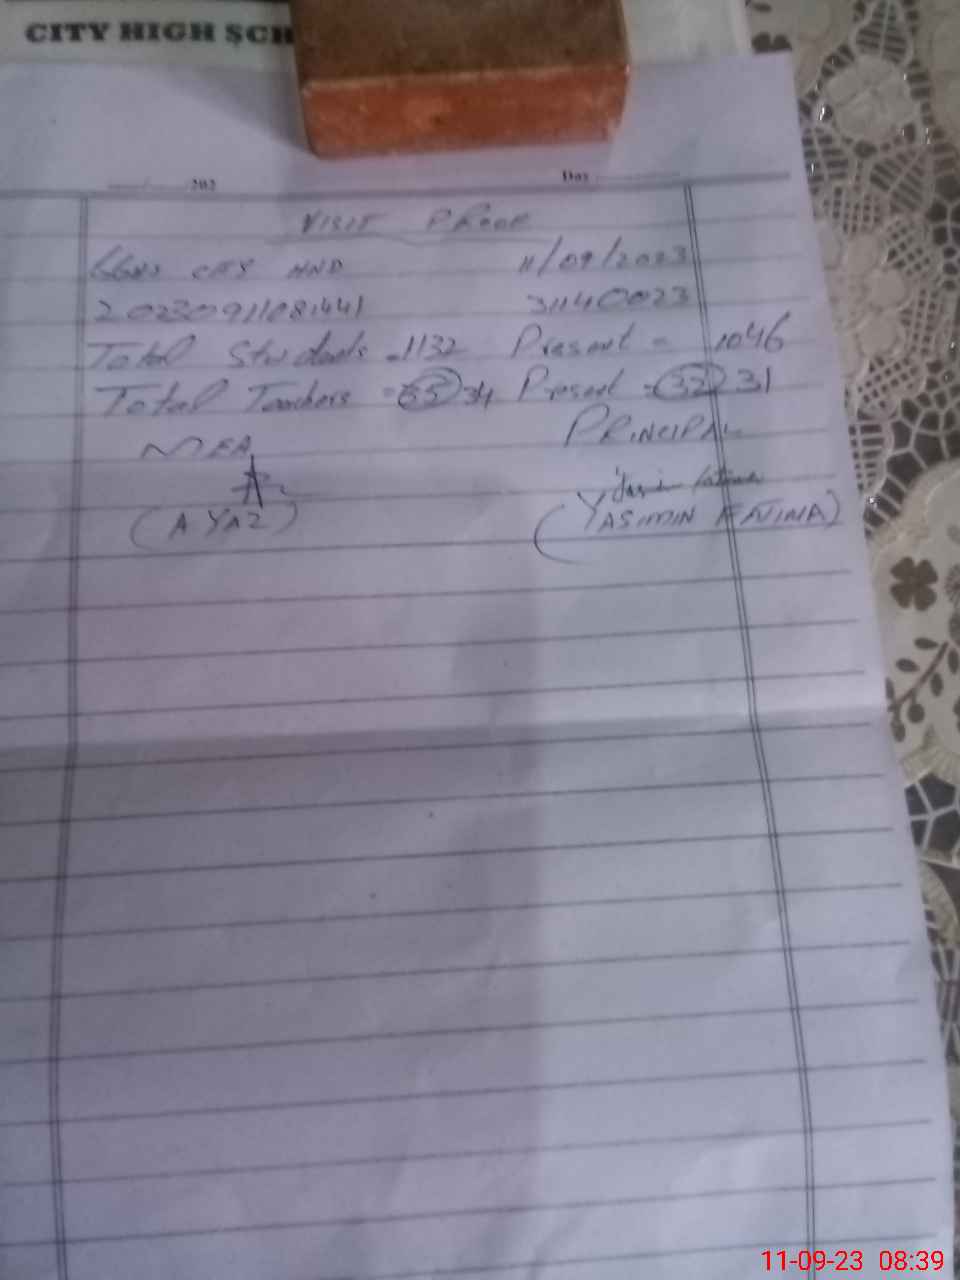 CITY HIGH SCH
202 Day
VISIT PROOF
GGHS CITY HND 11/09/2023
20230911081441 31140023
Total Students = 1132 Present = 1046
Total Teachers = 35 34 Present = 32 31
MEA PRINCIPAL
Yasmin Fatima
(AYAZ) (YASIMIN FATIMA)
11-09-23 08:39